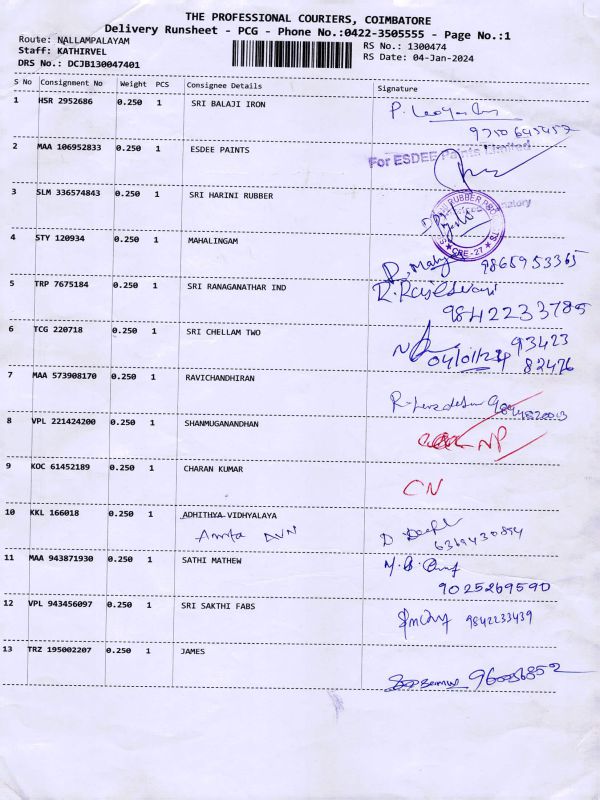 THE PROFESSIONAL COURIERS, COIMBATORE
Delivery Runsheet - PCG - Phone No.:0422-3505555 - Page No.:1
Route: NALLAMPALAYAM
RS No.: 1300474
Staff: KATHIRVEL
RS Date: 04-Jan-2024
DRS No.: DCJB130047401
S No Consignment No Weight PCS Consignee Details Signature
1 HSR 2952686 0.250 1 SRI BALAJI IRON
2 MAA 106952833 0.250 1 ESDEE PAINTS
For ESDEE Paints Limited
3 SLM 336574843 0.250 1 SRI HARINI RUBBER
CBE-27
4 STY 120934 0.250 1 MAHALINGAM
9865953365
5 TRP 7675184 0.250 1 SRI RANAGANATHAR IND
9842233785
6 TCG 220718 0.250 1 SRI CHELLAM TWO
93423
04/01/24 82476
7 MAA 573908170 0.250 1 RAVICHANDHIRAN
8 VPL 221424200 0.250 1 SHANMUGANANDHAN
NP
9 KOC 61452189 0.250 1 CHARAN KUMAR
CN
10 KKL 166018 0.250 1 ADHITHYA VIDHYALAYA
Amrita AVN
6369430894
11 MAA 943871930 0.250 1 SATHI MATHEW
9025269590
12 VPL 943456097 0.250 1 SRI SAKTHI FABS
9842233439
13 TRZ 195002207 0.250 1 JAMES